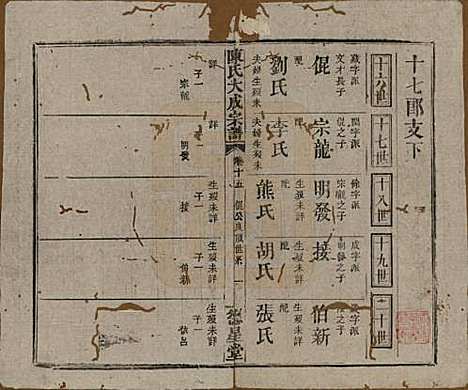 十七郎支下
十六世
十七世
十八世
十九世
二十世
歲字派
文才長子
倨
配
劉氏
夫婦生歿未
詳
子一
宗龍
閏字派
倨之子
宗龍
配
李氏
夫婦生歿未
詳
子一
明發
餘字派
宗龍之子
明發
配
熊氏
生歿未詳
子一
接
成字派
明發之子
接
配
胡氏
生歿未詳
子一
伯新
歲字派
接之子
伯新
配
張氏
生歿未詳
子一
依呂
陳氏大成宗譜
卷十五
聚星堂